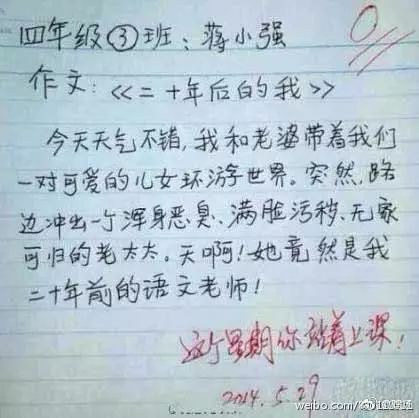 四年级③班：蒋小强
0
作文：《二十年后的我》
今天天气不错，我和老婆带着我们
一对可爱的儿女环游世界。突然，路
边冲出一个浑身恶臭、满脸污秽、无家
可归的老太太。天啊！她竟然是我
二十年前的语文老师！
这个星期你站着上课！
2014.5.29
weibo.com/